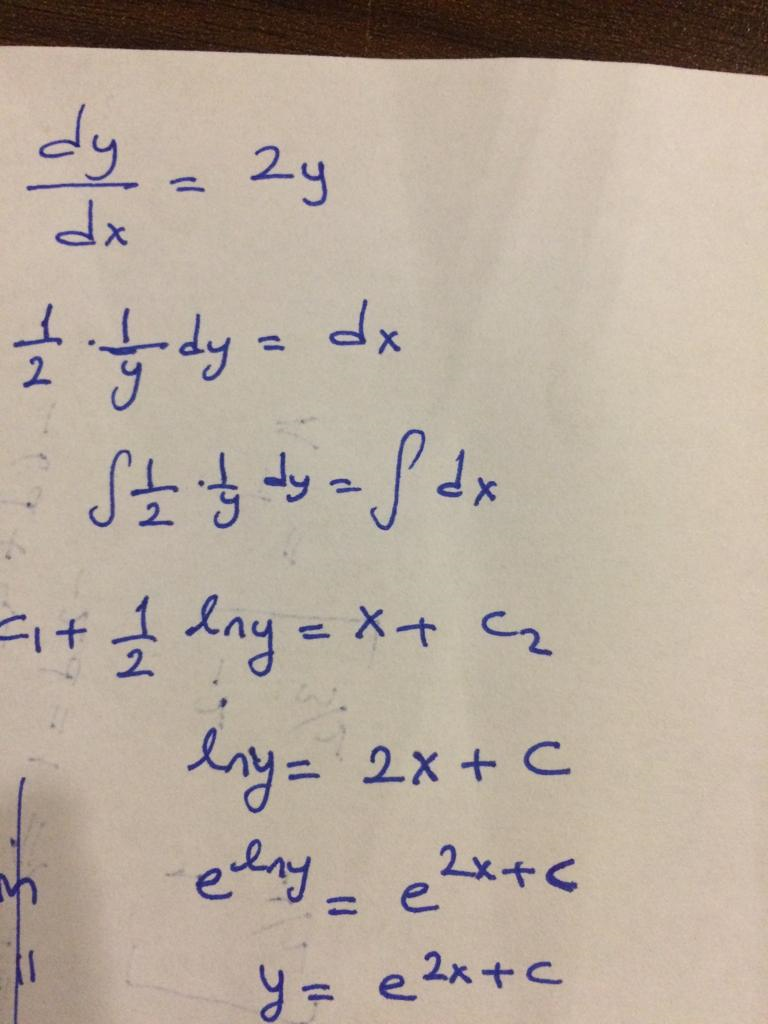 dy/dx = 2y
1/2 · 1/y dy = dx
∫ 1/2 · 1/y dy = ∫ dx
c₁ + 1/2 lny = x + c₂
lny = 2x + c
e^lny = e^(2x+c)
y = e^(2x+c)